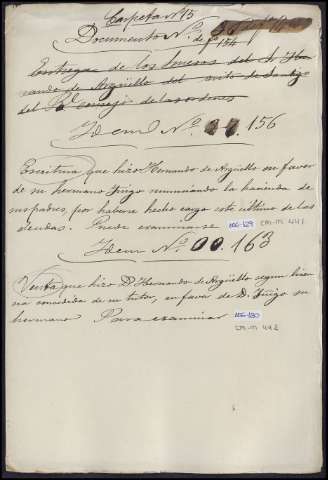 Carpeta nº 15
Documento Nº
de 154
Entrega de los bienes del Sr. Her
nando de Argüello del
del Rl. consejo de las ordenes
Idem Nº 156
Escritura que hizo Hernando de Argüello en favor
de su hermano Iñigo renunciando la hacienda de
sus padres, por haberse hecho cargo este ultimo de las
deudas. Puede examinarse 166-129 CM-M 441
Idem Nº 00. 163
Venta que hizo D. Hernando de Argüello segun licen
cia concedida de su tutor, en favor de D. Iñigo su
hermano Para examinar 166-130
CM-M 442